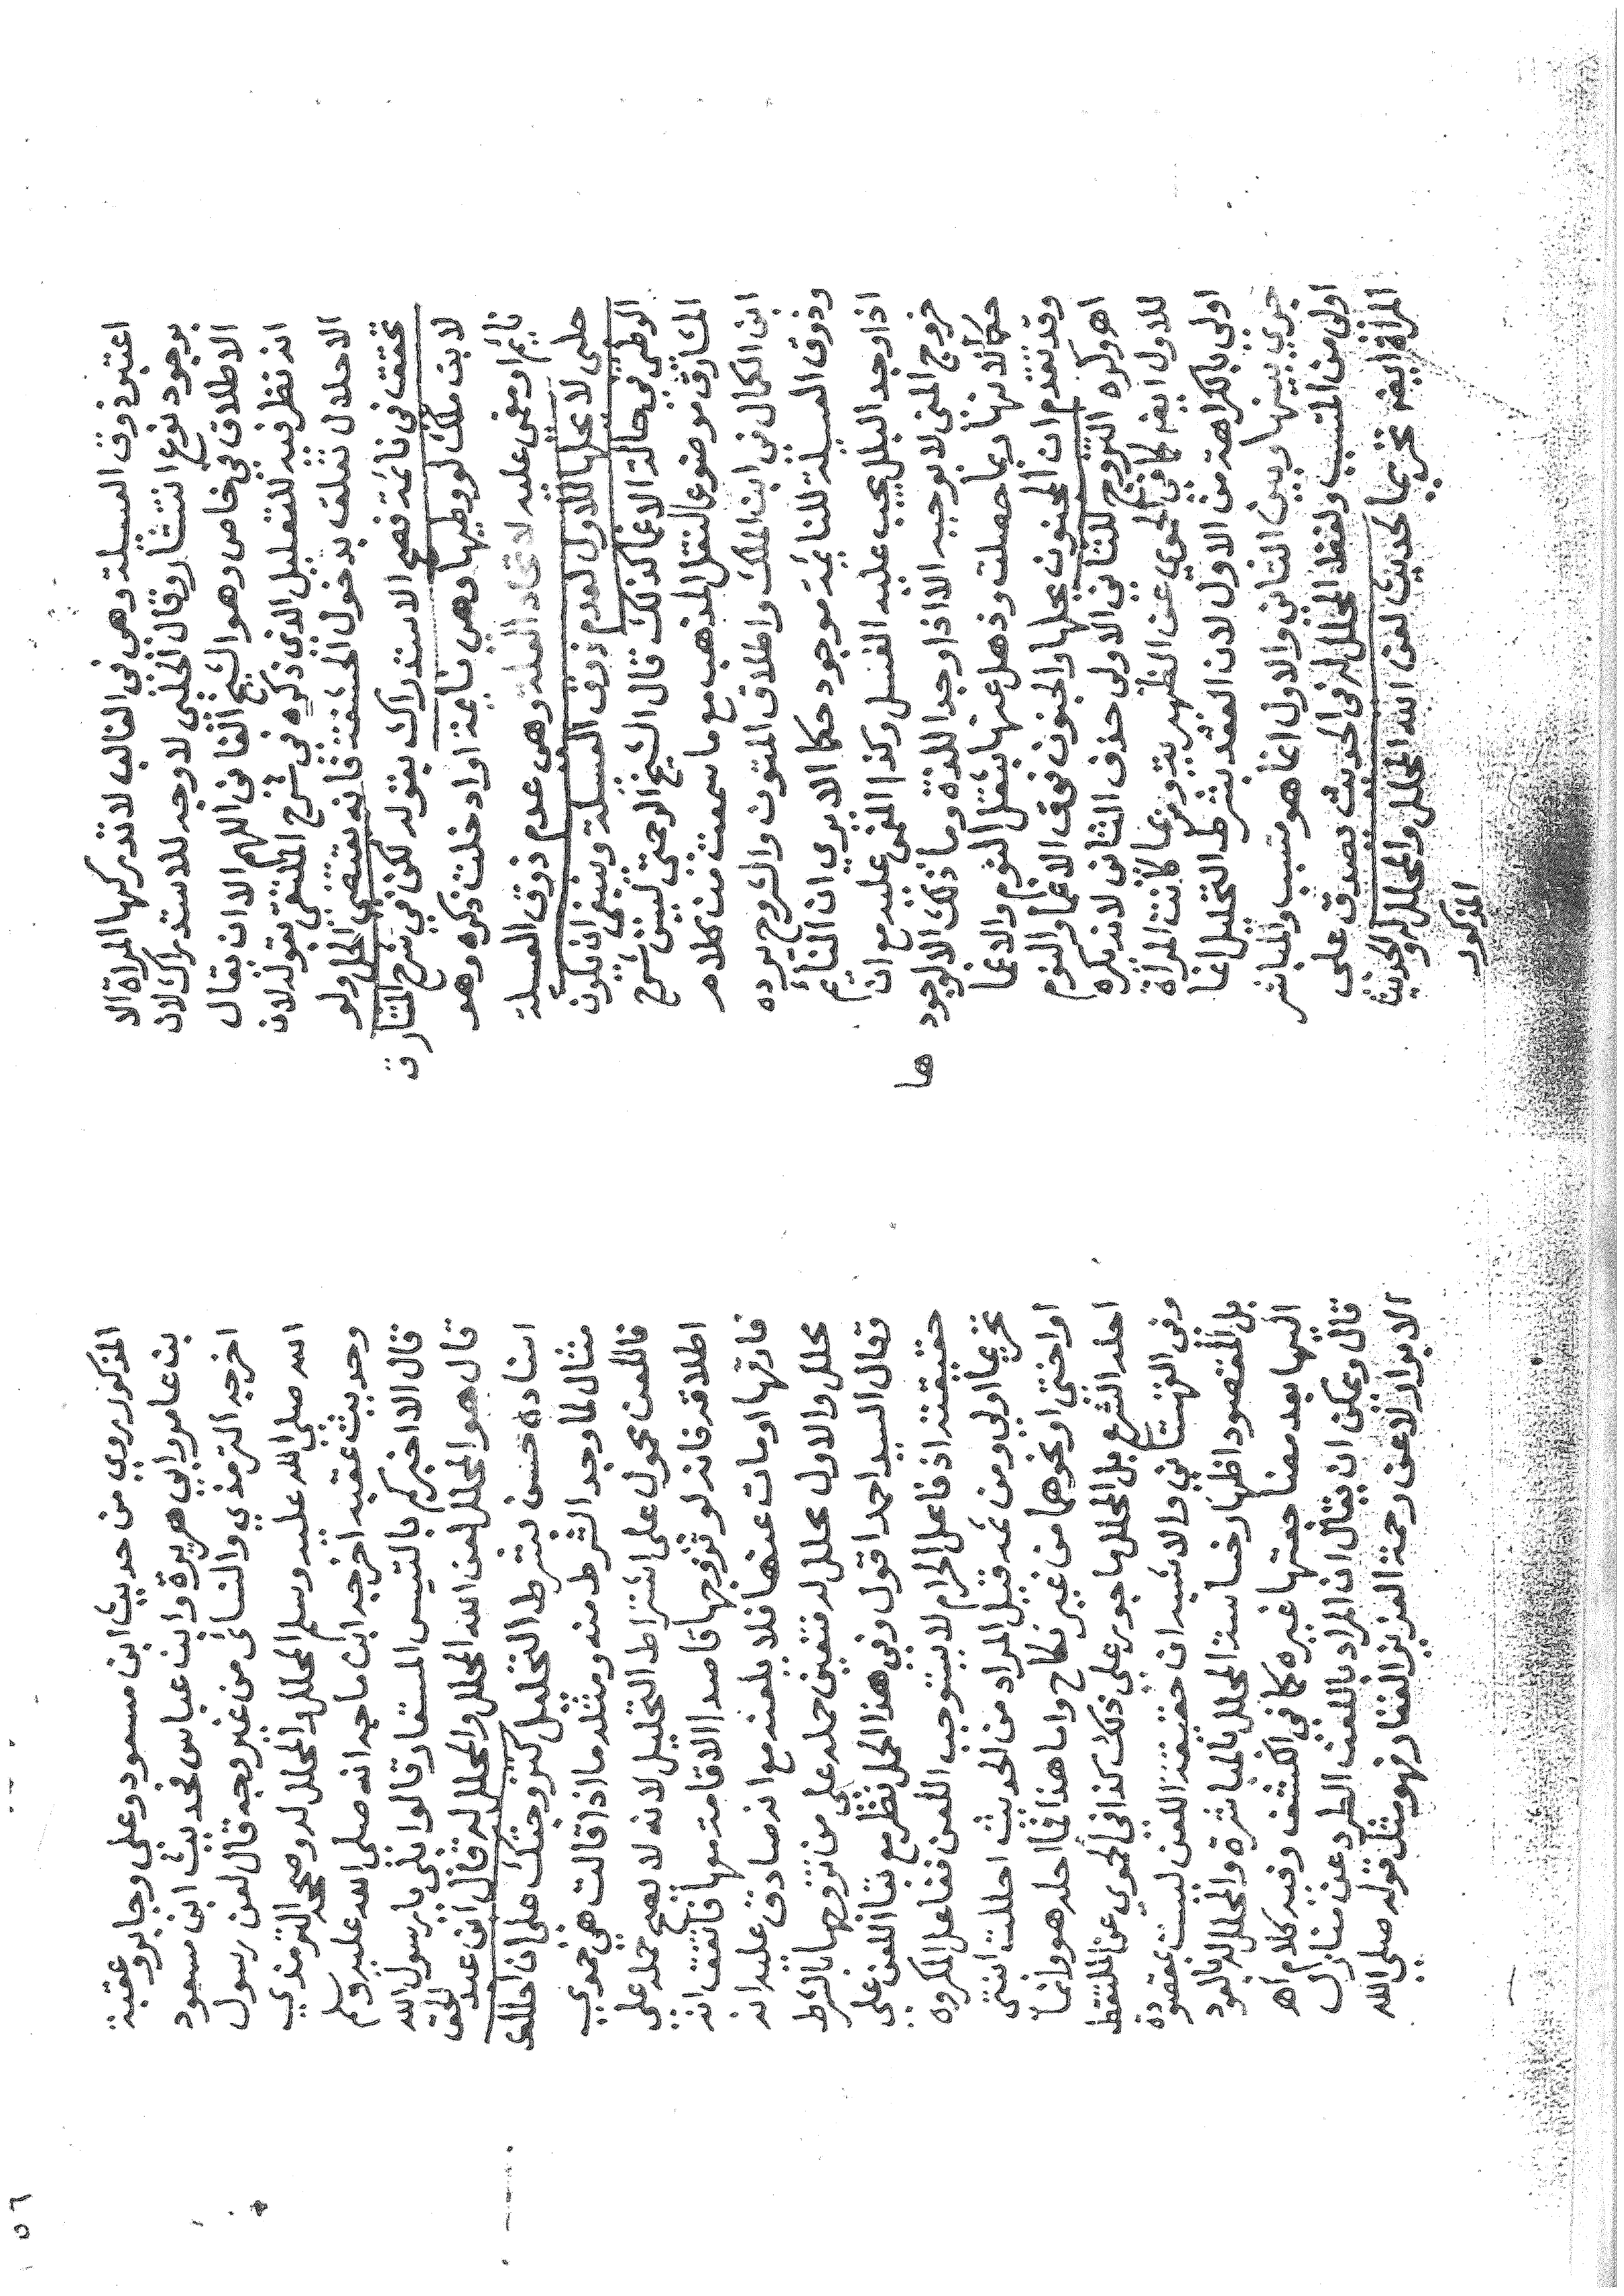 اعتبر ذوق العسيلة وهي في الغالب لا تدركها المرأة الا
بوجود نوع انتشار وقال الحلبي لا وجه للاستدراك لان
الاطلاق في خاص وهو الشيخ الفاني اللهم الا ان يقال
انه نظر فيه للتعليل الذي ذكره في شرح الملتقى بقوله لان
الاحلال تتعلق بدخول الحشفة فانه يقتضي الحل ولو
تحقق في نائمة فصح الاستدراك بقوله لكن في شرح المشارق
لابن ملك لو وطيها وهي نايمة او ادخلت ذكره وهو
نائم او مغمى عليه لاتحاد العلة وهي عدم ذوق العسيلة
حلبي لا يحلها للاول لعدم ذوق العسيلة وينبغي ان يكون
الوطي في حالة الاغما كذلك قال الشيخ الرحمتي ليس شرح
المشارق موضوعا لنقل المذهب مع ما سمعت من كلام
ابن الكمال في ابن الملك واطلاق المتون والشروح يرده
وذوق العسيلة للنايمة موجود حكما الا يرى ان النائم
اذا وجد البلل يجب عليه الغسل وكذا المغمى عليه مع ان
خروج المني لا يوجبه الا اذا وجد اللذة وما ذلك الا لوجودها
حكما لانها ربما حصلت وذهل عنها بثقل النوم والاغما
وقد تقدم ان المجنون يحلها والجنون فوق الاغما والنوم
اهـ وكره التزوج للثاني الاولى حذف الثاني لانه يكره
للاول ايضا كما في الحموي عن الظهيرية وربما كانت المرأة
اولى بالكراهة من الاول لان العقد بشرط التحليل انما
جرى بينها وبين الثاني والاول انما هو متسبب والمباشر
اولى من المتسبب ولفظ المحلل له في الحديث يصدق على
المرأة ايضا تحريما لحديث لعن الله المحلل والمحلل له والحديث
المذكور
المذكور روي من حديث ابن مسعود وعلي وجابر وعقبة
بن عامر وابي هريرة وابن عباس فحديث ابن مسعود
اخرجه الترمذي والنسائي من غير وجه قال لعن رسول
الله صلى الله عليه وسلم المحلل والمحلل له وصححه الترمذي
وحديث عقبه اخرجه ابن ماجه انه صلى الله عليه وسلم
قال الا اخبركم بالتيس المستعار قالوا بلى يا رسول الله
قال هو المحلل لعن الله المحلل والمحلل له قال ابن عبد الحق
اسناده حسن بشرط التحليل كتزوجتك على ان احللك
مثال لما وجد الشرط منه ومثله ما اذا قالت هي حموي
فاللعن محمول على اشتراط التحليل لانه لا يصح حمله على
اطلاقه فانه لو تزوجها قاصدا الاقامة معها فاتفق انه
فارقها او مات عنها فلا يلعنه مع انه صادق عليه انه
محلل والاول محلل له فتعين حمله على من تزوجها بالشرط
وقال السيد احمد اقول وفي هذا المحل نظر مع بقا اللعن على
حقيقته اذ فاعل الحرام لا يستوجب اللعن ففاعل المكروه
تحريما اولى ومن ثمه قيل المراد من الحديث احللت ابنتي
او اختي او نحوهما من غير نكاح واما هذا فما احله هو وانما
احله الشرع بل المحلل ماجور على ذلك كذا في الحموي عن الملتقط
وفي القهستاني والاشبه ان حقيقة اللعن ليست بمقصودة
بل المقصود اظهار خساسة المحلل بالمباشرة والمحلل له بالعود
اليها بعد مضاجعتها غيره كما في الكشف وفيه كلام اهـ
قال ويمكن ان يقال ان المراد باللعن الطرد عن منازل
الابرار لا عن رحمة العزيز الغفار فهو مثل قوله صلى الله